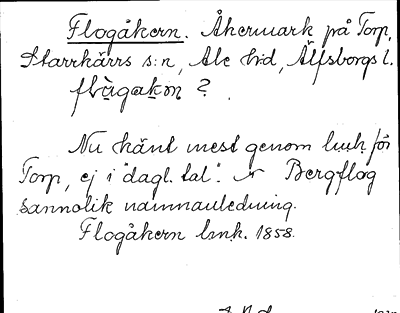 Flogåkern. Åkermark på Torp,
Starrkärrs s:n, Ale hd, Älfsborgs l.
flògakơn ?
Nu känt mest genom lmk för
Torp, ej i "dagl. tal". Bergflog
sannolik namnanledning.
Flogåkern lmk. 1858.